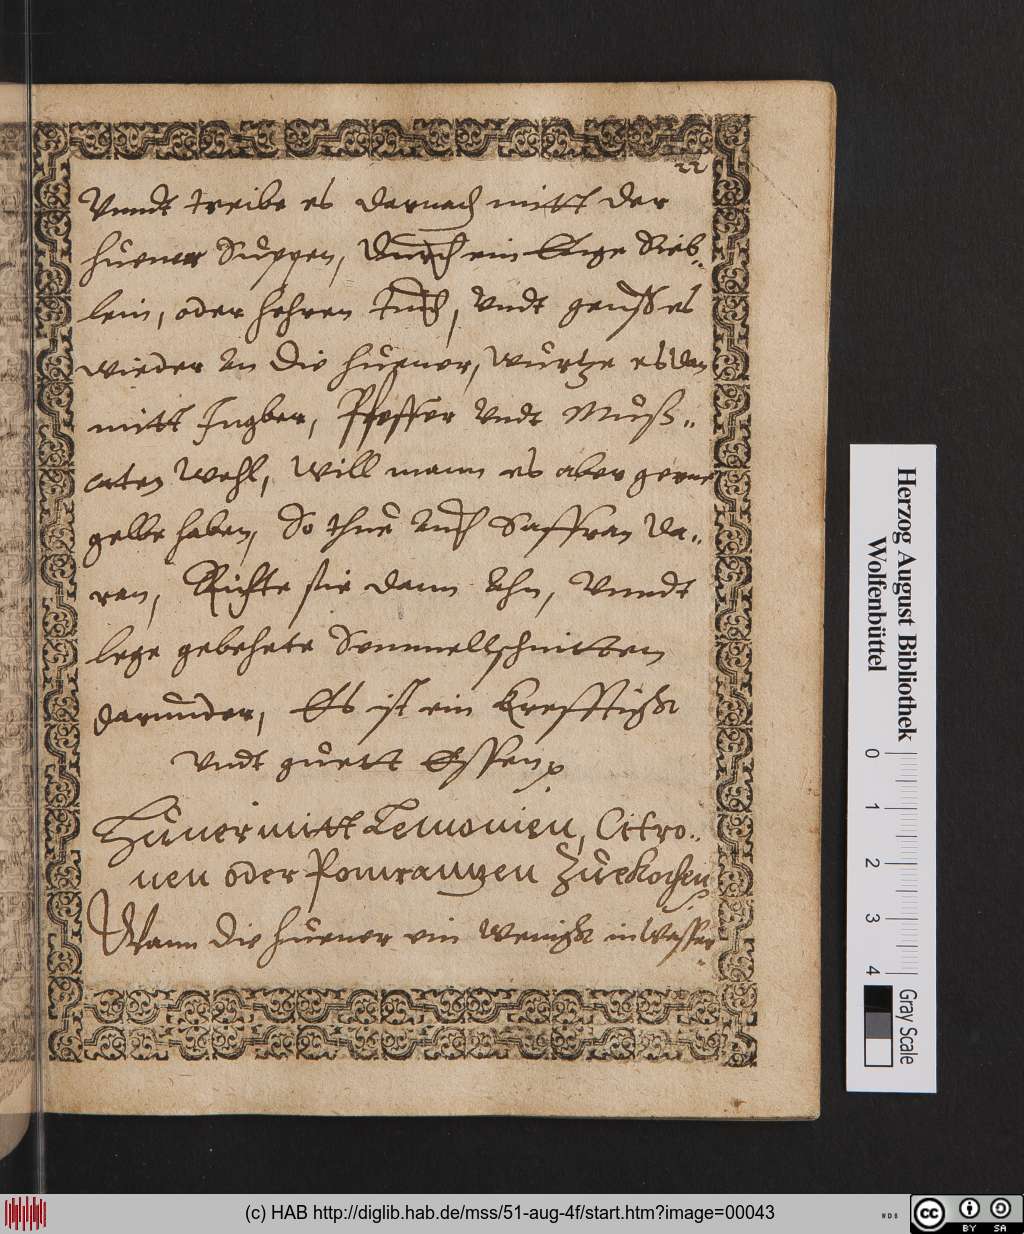 22
Vnndt treibe es darnach mitt der
huener Suppen, durch ein Enge Sieb„
lein, oder hehren tuch, Vndt geuß es
wieder an die huener, würtze es dan
mitt Ingber, Pfeffer Vndt Muß„
caten Wohl, will mann es aber gerne
gelbe haben, So thue auch Saffran da„
ran, Richte sie dann ahn, Vnndt
lege gebehete Semmellschnitten
darunder, Es ist ein krefftigk
Vndt guett Essen
Hüner mitt Lemonien, Citro„
nen oder Pomrantzen Zue kochen
Wann die huener ein wenigk in wasser
Herzog August Bibliothek
Wolfenbüttel
0 1 2 3 4
Gray Scale
(c) HAB http://diglib.hab.de/mss/51-aug-4f/start.htm?image=00043
WDB
cc BY SA